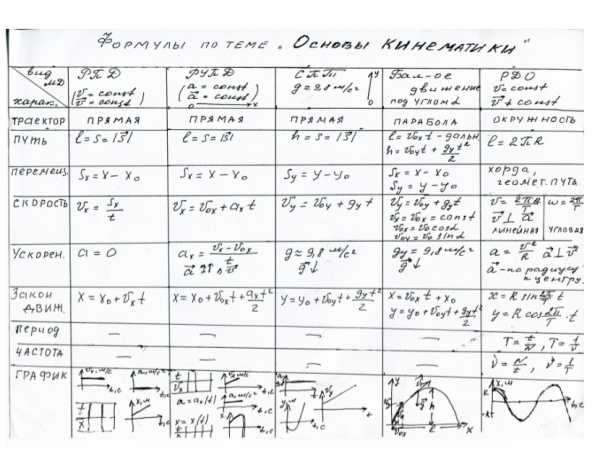 Формулы по теме „Основы кинематики"
вид МД
харак.
РПД
(v = const
v⃗ = const)
РУПД
(a = const
a⃗ = const)
СПТ
g = 9,8 м/с²
y
Бал-ое движение под углом α
РДО
v = const
v⃗ ≠ const
траектор
прямая
прямая
прямая
парабола
окружность
путь
l = S = |S⃗|
l = S = |S⃗|
h = S = |S⃗|
l = v₀ₓt - дальн
h = v₀yt + gyt²/2
l = 2πR
перемещ.
Sₓ = x - x₀
Sₓ = x - x₀
Sy = y - y₀
Sₓ = x - x₀
Sy = y - y₀
хорда,
геомет. путь
скорость
vₓ = Sₓ/t
vₓ = v₀ₓ + aₓt
vy = v₀y + gyt
vy = v₀y + gyt
vₓ = v₀ₓ = const
v₀ₓ = v₀cosα
v₀y = v₀ sinα
v = 2πR/T
ω = 2π/T
линейная угловая
Ускорен.
a = 0
aₓ = (vₓ - v₀ₓ)/t
g ≈ 9,8 м/с²
g⃗↓
gy = 9,8 м/с²
g⃗↓
a = v²/R a⃗⊥v⃗
a⃗ - по радиусу к центру.
Закон движ.
x = x₀ + vₓt
x = x₀ + v₀ₓt + aₓt²/2
y = y₀ + v₀yt + gyt²/2
x = v₀ₓt + x₀
y = y₀ + v₀yt + gyt²/2
x = R sin 2π/T t
y = R cos 2π/T · t
период
–
–
–
–
T = t/N, T = 1/ν
частота
–
–
–
–
ν = N/t, ν = 1/T
график